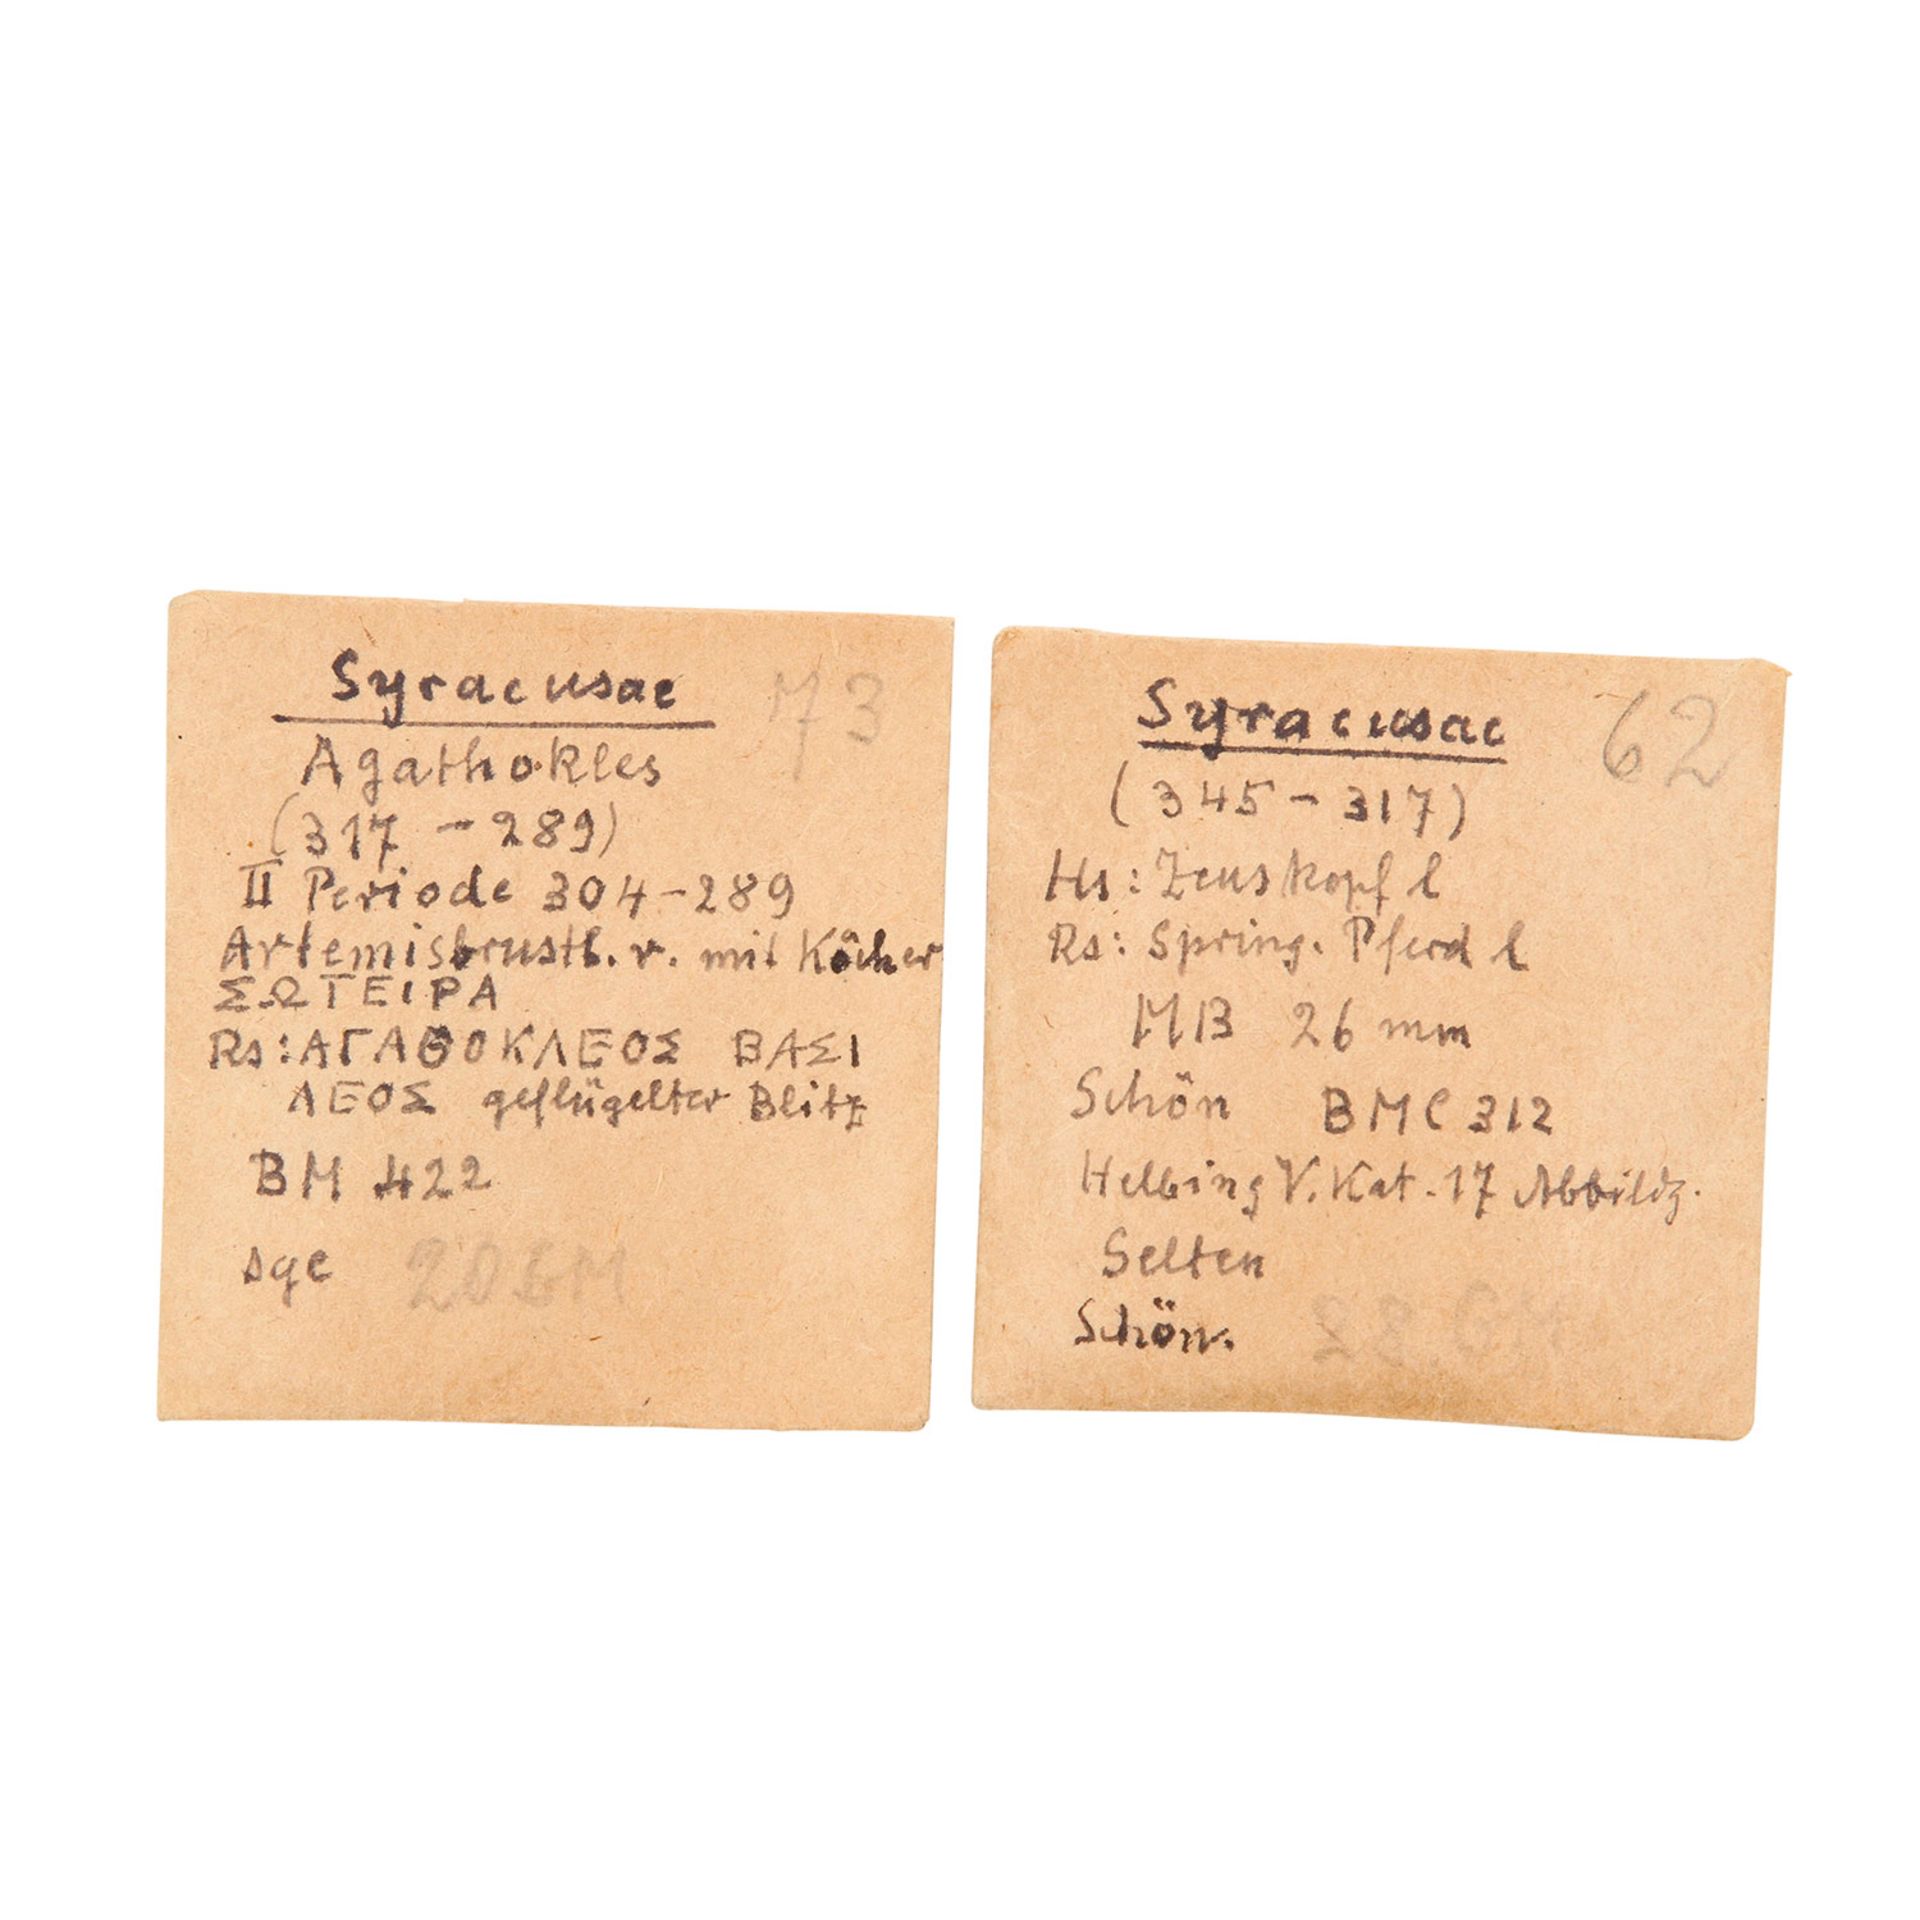 Syracusae
Agathokles
(317 - 289)
II Periode 304-289
Artemisbrustb. r. mit Köcher
ΣΩΤΕΙΡΑ
Rs: ΑΓΑΘΟΚΛΕΟΣ ΒΑΣΙ
ΛΕΟΣ geflügelter Blitz
BM 422
sge
Syracusae 62
(345 - 317)
Hs: Zeuskopf l
Rs: Spring. Pferd l
MB 26 mm
Schön BMC 312
Helbing V. Kat. 17 Abbildg.
Selten
Schön.